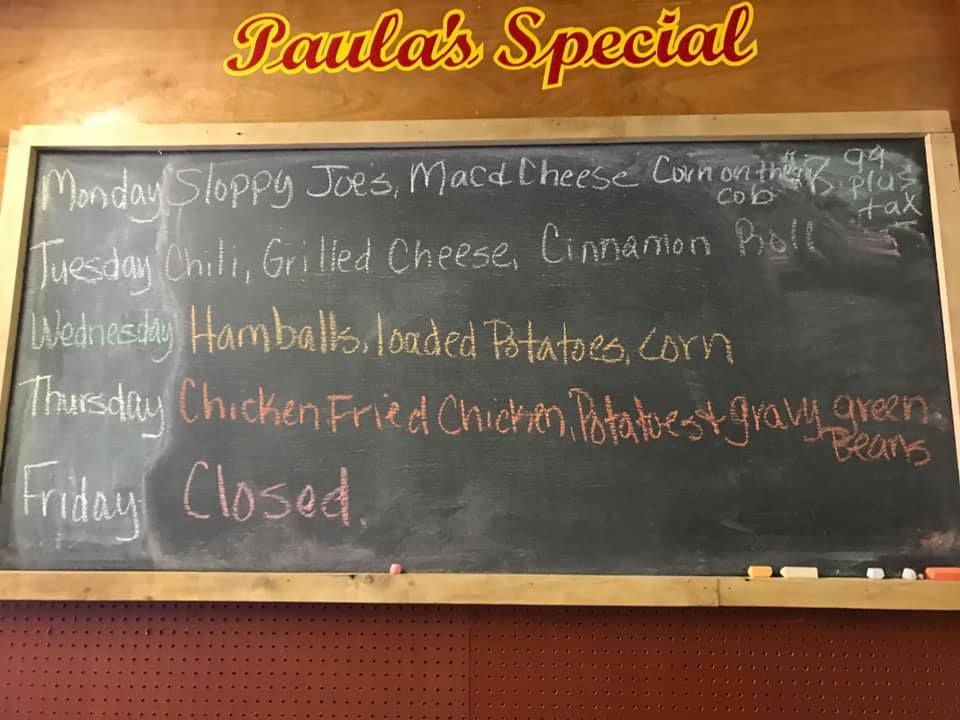 Paula's Special
Monday Sloppy Joe's, Mac & Cheese Corn on the cob $8.99 plus tax
Tuesday Chili, Grilled Cheese, Cinnamon Roll
Wednesday Hamballs, loaded Potatoes, Corn
Thursday Chicken Fried Chicken, Potatoes & gravy green Beans
Friday Closed.